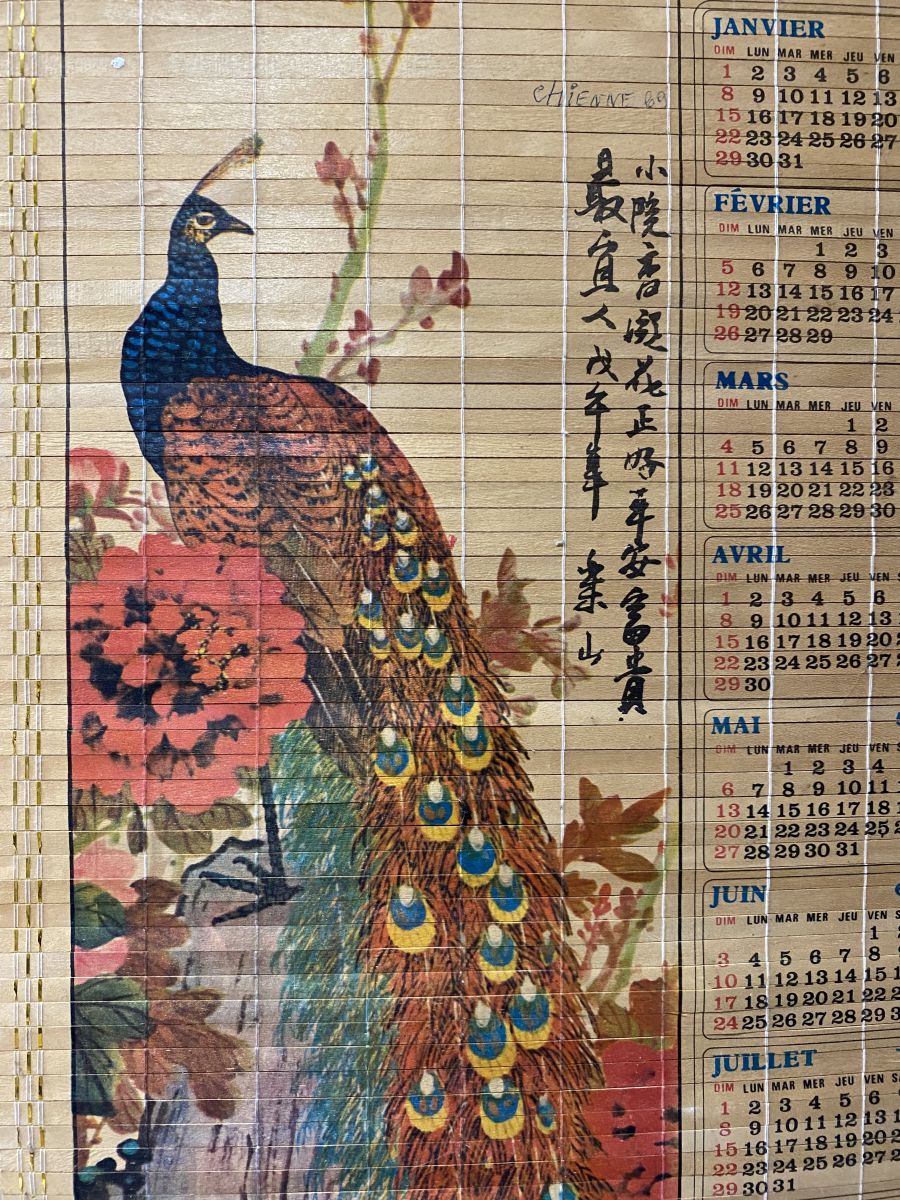 CHIENNE 69
小院香凝花正好平安富貴
最宜人戊午年 山
JANVIER
DIM LUN MAR MER JEU VEN
1 2 3 4 5 6
8 9 10 11 12 13
15 16 17 18 19 20
22 23 24 25 26 27
29 30 31
FÉVRIER
DIM LUN MAR MER JEU VEN
1 2 3
5 6 7 8 9 10
12 13 14 15 16 17
19 20 21 22 23 24
26 27 28 29
MARS
DIM LUN MAR MER JEU VEN
1 2
4 5 6 7 8 9
11 12 13 14 15 16
18 19 20 21 22 23
25 26 27 28 29 30
AVRIL
DIM LUN MAR MER JEU VEN
1 2 3 4 5 6
8 9 10 11 12 13
15 16 17 18 19 20
22 23 24 25 26 27
29 30
MAI
DIM LUN MAR MER JEU VEN
1 2 3 4
6 7 8 9 10 11
13 14 15 16 17 18
20 21 22 23 24 25
27 28 29 30 31
JUIN
DIM LUN MAR MER JEU VEN
1
3 4 5 6 7 8
10 11 12 13 14 15
17 18 19 20 21 22
24 25 26 27 28 29
JUILLET
DIM LUN MAR MER JEU VEN
1 2 3 4 5 6
8 9 10 11 12 13
15 16 17 18 19 20
22 23 24 25 26 27
29 30 31